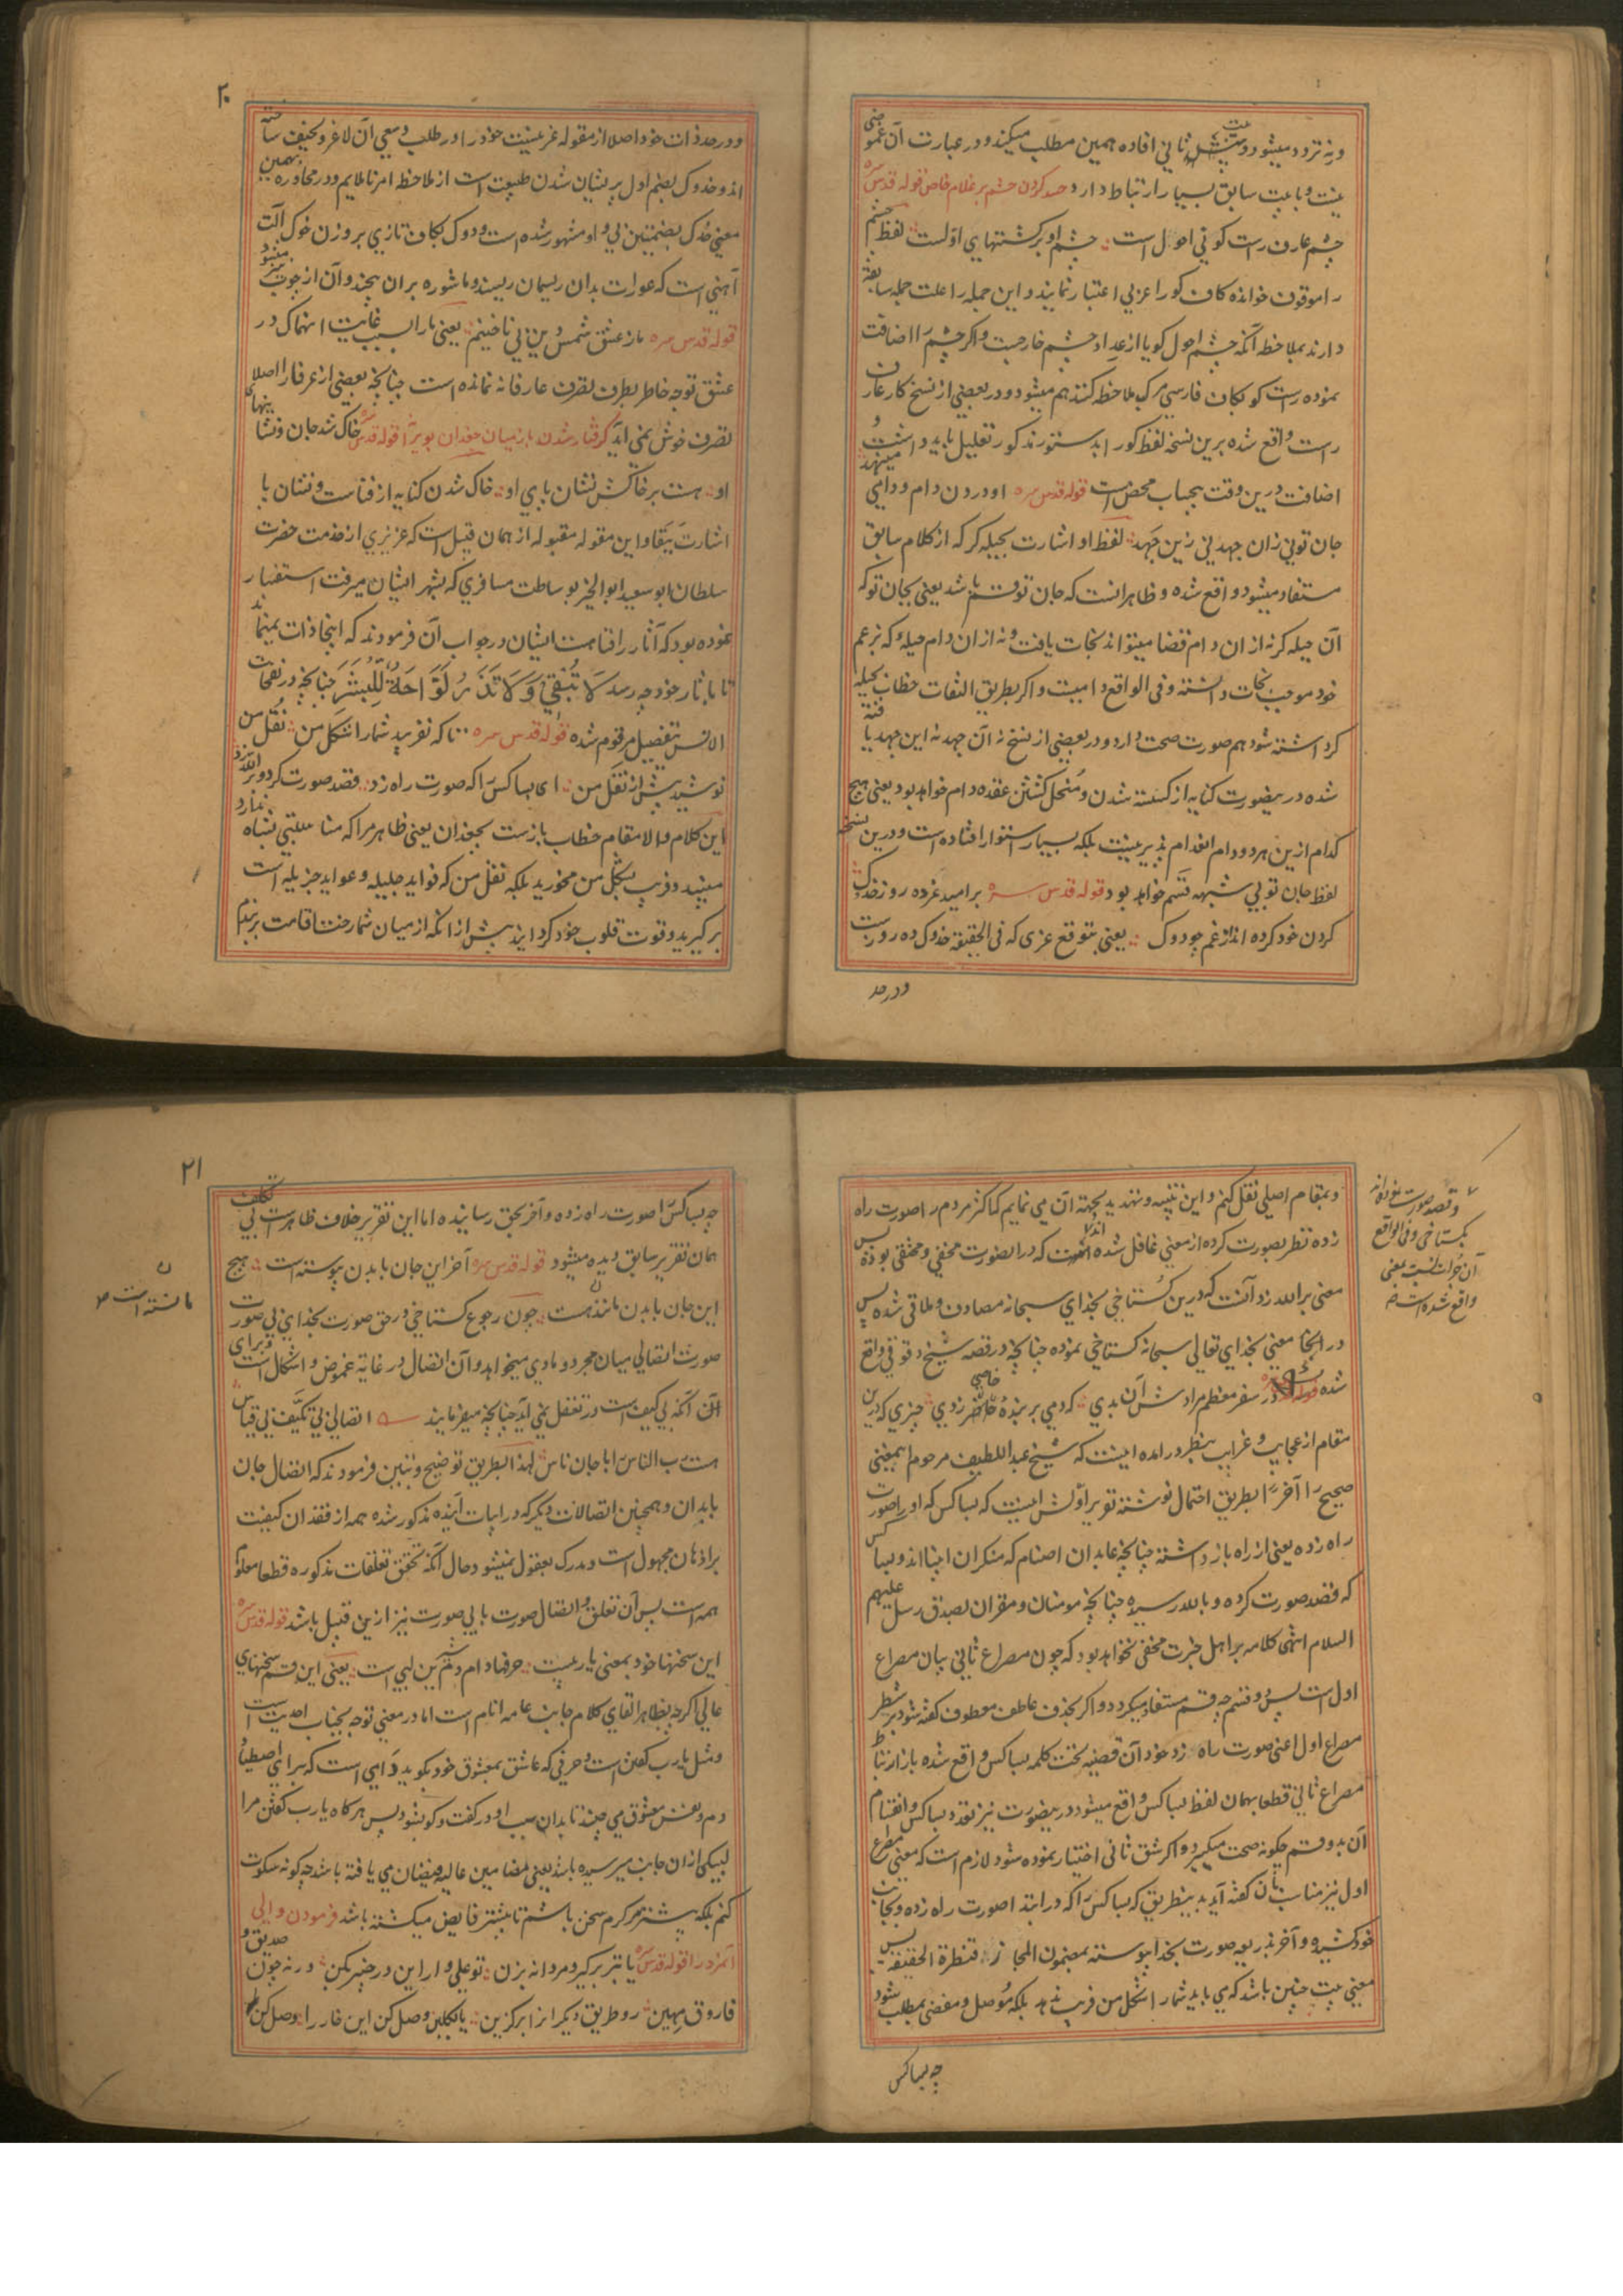 و نه تردد میشود و بیت ثانی افاده همین مطلب میکند و در عبارت آن غموضی
نیست و با بیت سابق بسیار ارتباط دارد حسد کردن حشم بر غلام خاص قوله قدس سره
چشم عارف راست گوئی احول است چشم او بر کشتهای اول است لفظ چشم
را موقوف خوانده کاف کو را عربی اعتبار نمایند و این جمله را علت جمله سابقه
دارند بملاحظه آنکه چشم احول گویا از عداد چشم خارجست و اگر چشم را اضافت
نموده راست گو بکاف فارسی مرکب ملاحظه کنند هم میشود و در بعضی از نسخ کار عارف
راست واقع شده برین نسخه لفظ کو را بدستور مذکور تعلیل باید داشت و
اضافت درین وقت بیحساب محض است قوله قدس سره او درون دام و دامی مینهد
جان تو نی زان جهد نی زین جهد لفظ او اشارت بحیله گر که از کلام سابق
مستفاد میشود واقع شده و ظاهر آنست که جان تو قسم باشد یعنی بجان تو که
آن حیله گر نه از آن دام قضا میتواند نجات یافت و نه از آن دام حیله که بزعم
خود موجب نجات دانسته و فی الواقع دامیست و اگر بطریق التفات خطاب بحیله
گر داشته شود هم صورت صحت دارد و در بعضی از نسخ نه آن جهد نه این جهد یافته
شده درینصورت کنایه از گسسته شدن و منحل گشتن عقده دام خواهد بود یعنی هیچ
کدام ازین هر دو دام انعدام پذیر نیست بلکه بسیار استوار افتاده است و درین نسخه
لفظ جان تو بی شبهه قسم خواهد بود قوله قدس سره بر امید عز ده روزه خدوک
گردن خود کرده اند از غم چو دوک یعنی بتوقع عزی که فی الحقیقة خدوک ده روز است
و در حد
۲۰
و در حد ذات خود اصلا از مقوله عز نیست خود را در طلب و سعی آن لاغر و نحیف ساخته
اند و خدوک بضم اول پریشان شدن طبیعت است از ملاحظه امر ناملایم و در محاوره بهمین
معنی خدک بضمتین بی واو مشهور شده است و دوک بکاف تازی بر وزن خوک آلت
آهنی است که عورات بدان ریسمان ریسند و ماشوره بران پیچند و آن از چوب نیز میشود
قوله قدس سره باز عشق شمس دین بی ناخنیم یعنی ما را بسبب غایت انهماک در
عشق توجه خاطر بطرف تصرف عارفانه نمانده است چنانچه بعضی از عرفا را اصلا
تصرف خوش نمی آید گرفتار شدن باز میان جغدان بویرانه قوله قدس سره خاک شد جان و نشانیهای
او هست بر خاکش نشان پای او خاک شدن کنایه از فناست و نشان پا
اشارت ببقا و این مقوله مقبوله از همان قبیل است که عزیزی از خدمت حضرت
سلطان ابو سعید ابو الخیر بوساطت مسافری که بشهر ایشان میرفت استفسار
نموده بود که آثار را فنا هست ایشان در جواب آن فرمودند که اینجا ذات نمیماند
تا بآثار خود چه رسد لَا تُبْقِي وَلَا تَذَرُ لَوَّاحَةٌ لِلْبَشَرِ چنانچه در نفحات
الانس بتفصیل مرقوم شده قوله قدس سره تا که نفریبد شما را شکل من نقل من
نوشید پیش از نقل من ای بسا کس را که صورت راه زد قصد صورت کرد و بر الله زد
این کلام والا مقام خطاب باز است بجغدان یعنی ظاهر مرا که مناسبتی بشاه ندارد
مبینید و فریب شکل من مخورید بلکه نقل من که فواید جلیله و عواید جزیله است
برگیرید و قوت قلوب خود گردانید پیش از آنکه از میان شما رخت اقامت بربندم
و بمقام اصلی نقل کنم و این تنبیه و تهدید بجهة آن می نمایم که اکثر مردم را صورت راه
زده نظر بصورت کرده از معنی غافل شده اند که در آن صورت مخفی و مختفی بوده پس
معنی بر الله زد آنست که درین گستاخی بخدای سبحانه مصادف و ملاقی شده پس
در اینجا معنی بخدای تعالی سبحانه گستاخی نموده چنانچه در قصه شیخ دقوقی واقع
شده قوله در سفر معظم مرادش آن بدی که دمی بر بنده خاصی زدی چیزی که درین
مقام از عجایب و غرایب بنظر در آمده اینست که شیخ عبد اللطیف مرحوم اینمعنی
صحیح را آخراً بطریق احتمال نوشته تقریر اولش اینست که بسا کس که او را صورت
راه زده یعنی از راه باز داشته چنانچه عابدان اصنام که منکران انبیا اند و بسا کس
که قصد صورت کرده و بالله رسیده چنانچه مومنان و مقران بصدق رسل علیهم
السلام انتهی کلامه بر اهل خبرت مخفی نخواهد بود که چون مصراع ثانی بیان مصراع
اول است پس دو قسم چه قسم مستفاد میگردد و اگر بحذف عاطف معطوف گفته شود بر شطر
مصراع اول اعنی صورت راه زد خود آن قضیه تحت کلمه بسا کس واقع شده باز ارتباط
مصراع ثانی قطعا بهمان لفظ بسا کس واقع میشود درینصورت نیز تعدد بسا کس و انقسام
آن بدو قسم چگونه صحت میگیرد و اگر شق ثانی اختیار نموده شود لازم است که معنی مصراع
اول نیز مناسب بآن گفته آید بدینطریق که بسا کس را که در ابتدا صورت راه زده و بجانب
خود کشیده و آخر بذریعه صورت بخدا پیوسته بمضمون المجاز قنطرة الحقیقة پس
معنی بیت چنین باشد که می باید شما را شکل من فریب ندهد بلکه موصل و مفضی بمطلب شود
چه بسا کس
و قصد صورت نموده اند
بگستاخی و فی الواقع
آن جرات نسبت بمعنی
واقع شده است
۲۱
چه بسا کس را صورت راه زده و آخر بحق رسانیده اما این تقریر خلاف ظاهر است بی تکلف
همان تقریر سابق دیده میشود قوله قدس سره آخر این جان با بدن پیوسته است هیچ
این جان با بدن مانند هست چون رجوع گستاخی در حق صورت بخدای بی صورت
صورت اتصالی میان مجرد و مادی میخواهد و آن اتصال در غایة غموض و اشکال است و برای
آن آنکه بی کیف است در تعقل نمی آید چنانچه میفرمایند اتصالی بی تکیف بی قیاس
هست رب الناس را با جان ناس لهذا بطریق توضیح و تبیین فرمودند که اتصال جان
بابدان و همچنین اتصالات دیگر که در ابیات آینده مذکور شده همه از فقدان کیفیت
بر اذهان مجهول است و مدرک بعقول نمیشود و حال آنکه تحقق تعلقات مذکوره قطعا معلوم
همه است پس آن تعلق و اتصال صورت با بی صورت نیز ازین قبیل باشد قوله قدس سره
این سخنها خود بمعنی یا ربیست حرفها دام دم شیرین لبی است یعنی این قسم سخنهای
عالی اگرچه بظاهر القای کلام جانب عامه انام است اما در معنی توجه بجناب احدیت است
و مثل یا رب گفتن است و حرفی که عاشق بمعشوق خود بگوید دامی است که برای اصطیاد
دم و نفس معشوق می چیند تا بدان سبب او در گفت و گو شود پس هر گاه یا رب گفتن مرا
لبیکی از آن جانب میرسیده باشد یعنی مضامین عالیه فیضان می یافته باشد چه گونه سکوت
کنم بلکه بیشتر سرگرم سخن باشم تا بیشتر فایض میگشته باشد فرمودن والی
آنمرد را قوله قدس سره یا تبر برگیر و مردانه بزن تو علی وار این در خیبر بکن ور نه چون صدیق و
فاروق مهین رو طریق دیگران را برگزین یا بگلبن وصل کن این خار را وصل کن
مانسته است